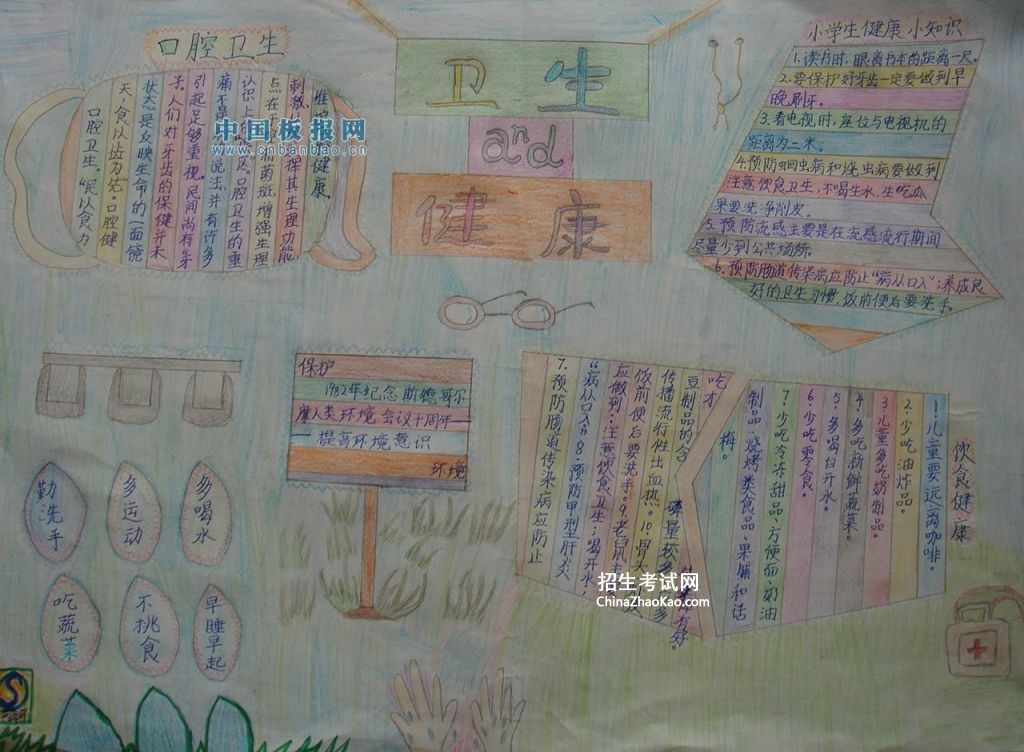 口腔卫生
口腔卫生。“民以食为
天，食以齿为先。口腔健
状态是反映生命的一面镜
子。人们对牙齿的保健并未
引起足够重视。民间尚有“朱
痛不是
说法，并有许多
认识上
区。口腔卫生的重
点在于
菌斑，增强生理
刺激，
挥其生理功能，
维
健康
中国板报网
www.cnbanbao.cn
卫生
and
健康
小学生健康小知识
1.读书时，眼离书本的距离一尺。
2.要保护好牙齿一定要做到早
晚刷牙。
3.看电视时，座位与电视机的
距离为二米。
4.预防蛔虫病和烧虫病要做到
注意饮食卫生，不喝生水，生吃瓜
果要洗净削皮。
5.预防流感主要是在流感流行期间
尽量少到公共场所。
6.预防肠道传染病应防止“病从口入”；养成良
好的卫生习惯，饭前便后要洗手。
保护
1982年纪念斯德哥尔
摩人类环境会议十周年——
— 提高环境意识
环境
勤洗手
多运动
多喝水
吃蔬菜
不挑食
早睡早起
饮食健康
1.儿童要远离咖啡。
2.少吃油炸品。
3.儿童多吃奶制品。
4.多吃新鲜蔬菜。
5.多喝白开水。
6.少吃零食。
7.少吃冷冻甜品、方便面、奶油
制品、烧烤类食品、果脯和话
梅。
吃才
豆制品的含
磷量较多
有好。
传播流行性出血热。10.骨头
饭前便后要洗手。9.老鼠
应做到：注意饮食卫生；喝开水，
“病从口入”8.预防甲型肝炎
7.预防肠道传染病应防止
招生考试网
ChinaZhaoKao.com